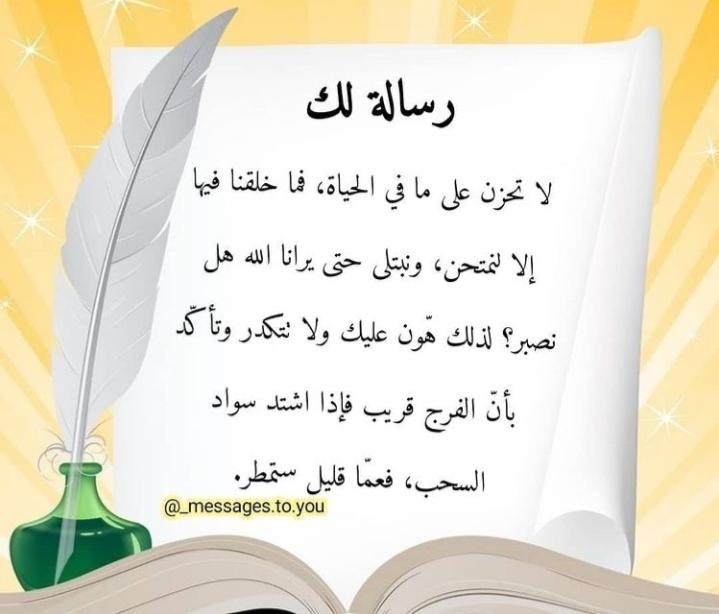 رسالة لك
لا تحزن على ما في الحياة، فما خلقنا فيها
إلا لنمتحن، ونبتلى حتى يرانا الله هل
نصبر؟ لذلك هّون عليك ولا تتكدر وتأكّد
بأنّ الفرج قريب فإذا اشتد سواد
السحب، فعمّا قليل ستمطر.
@_messages.to.you